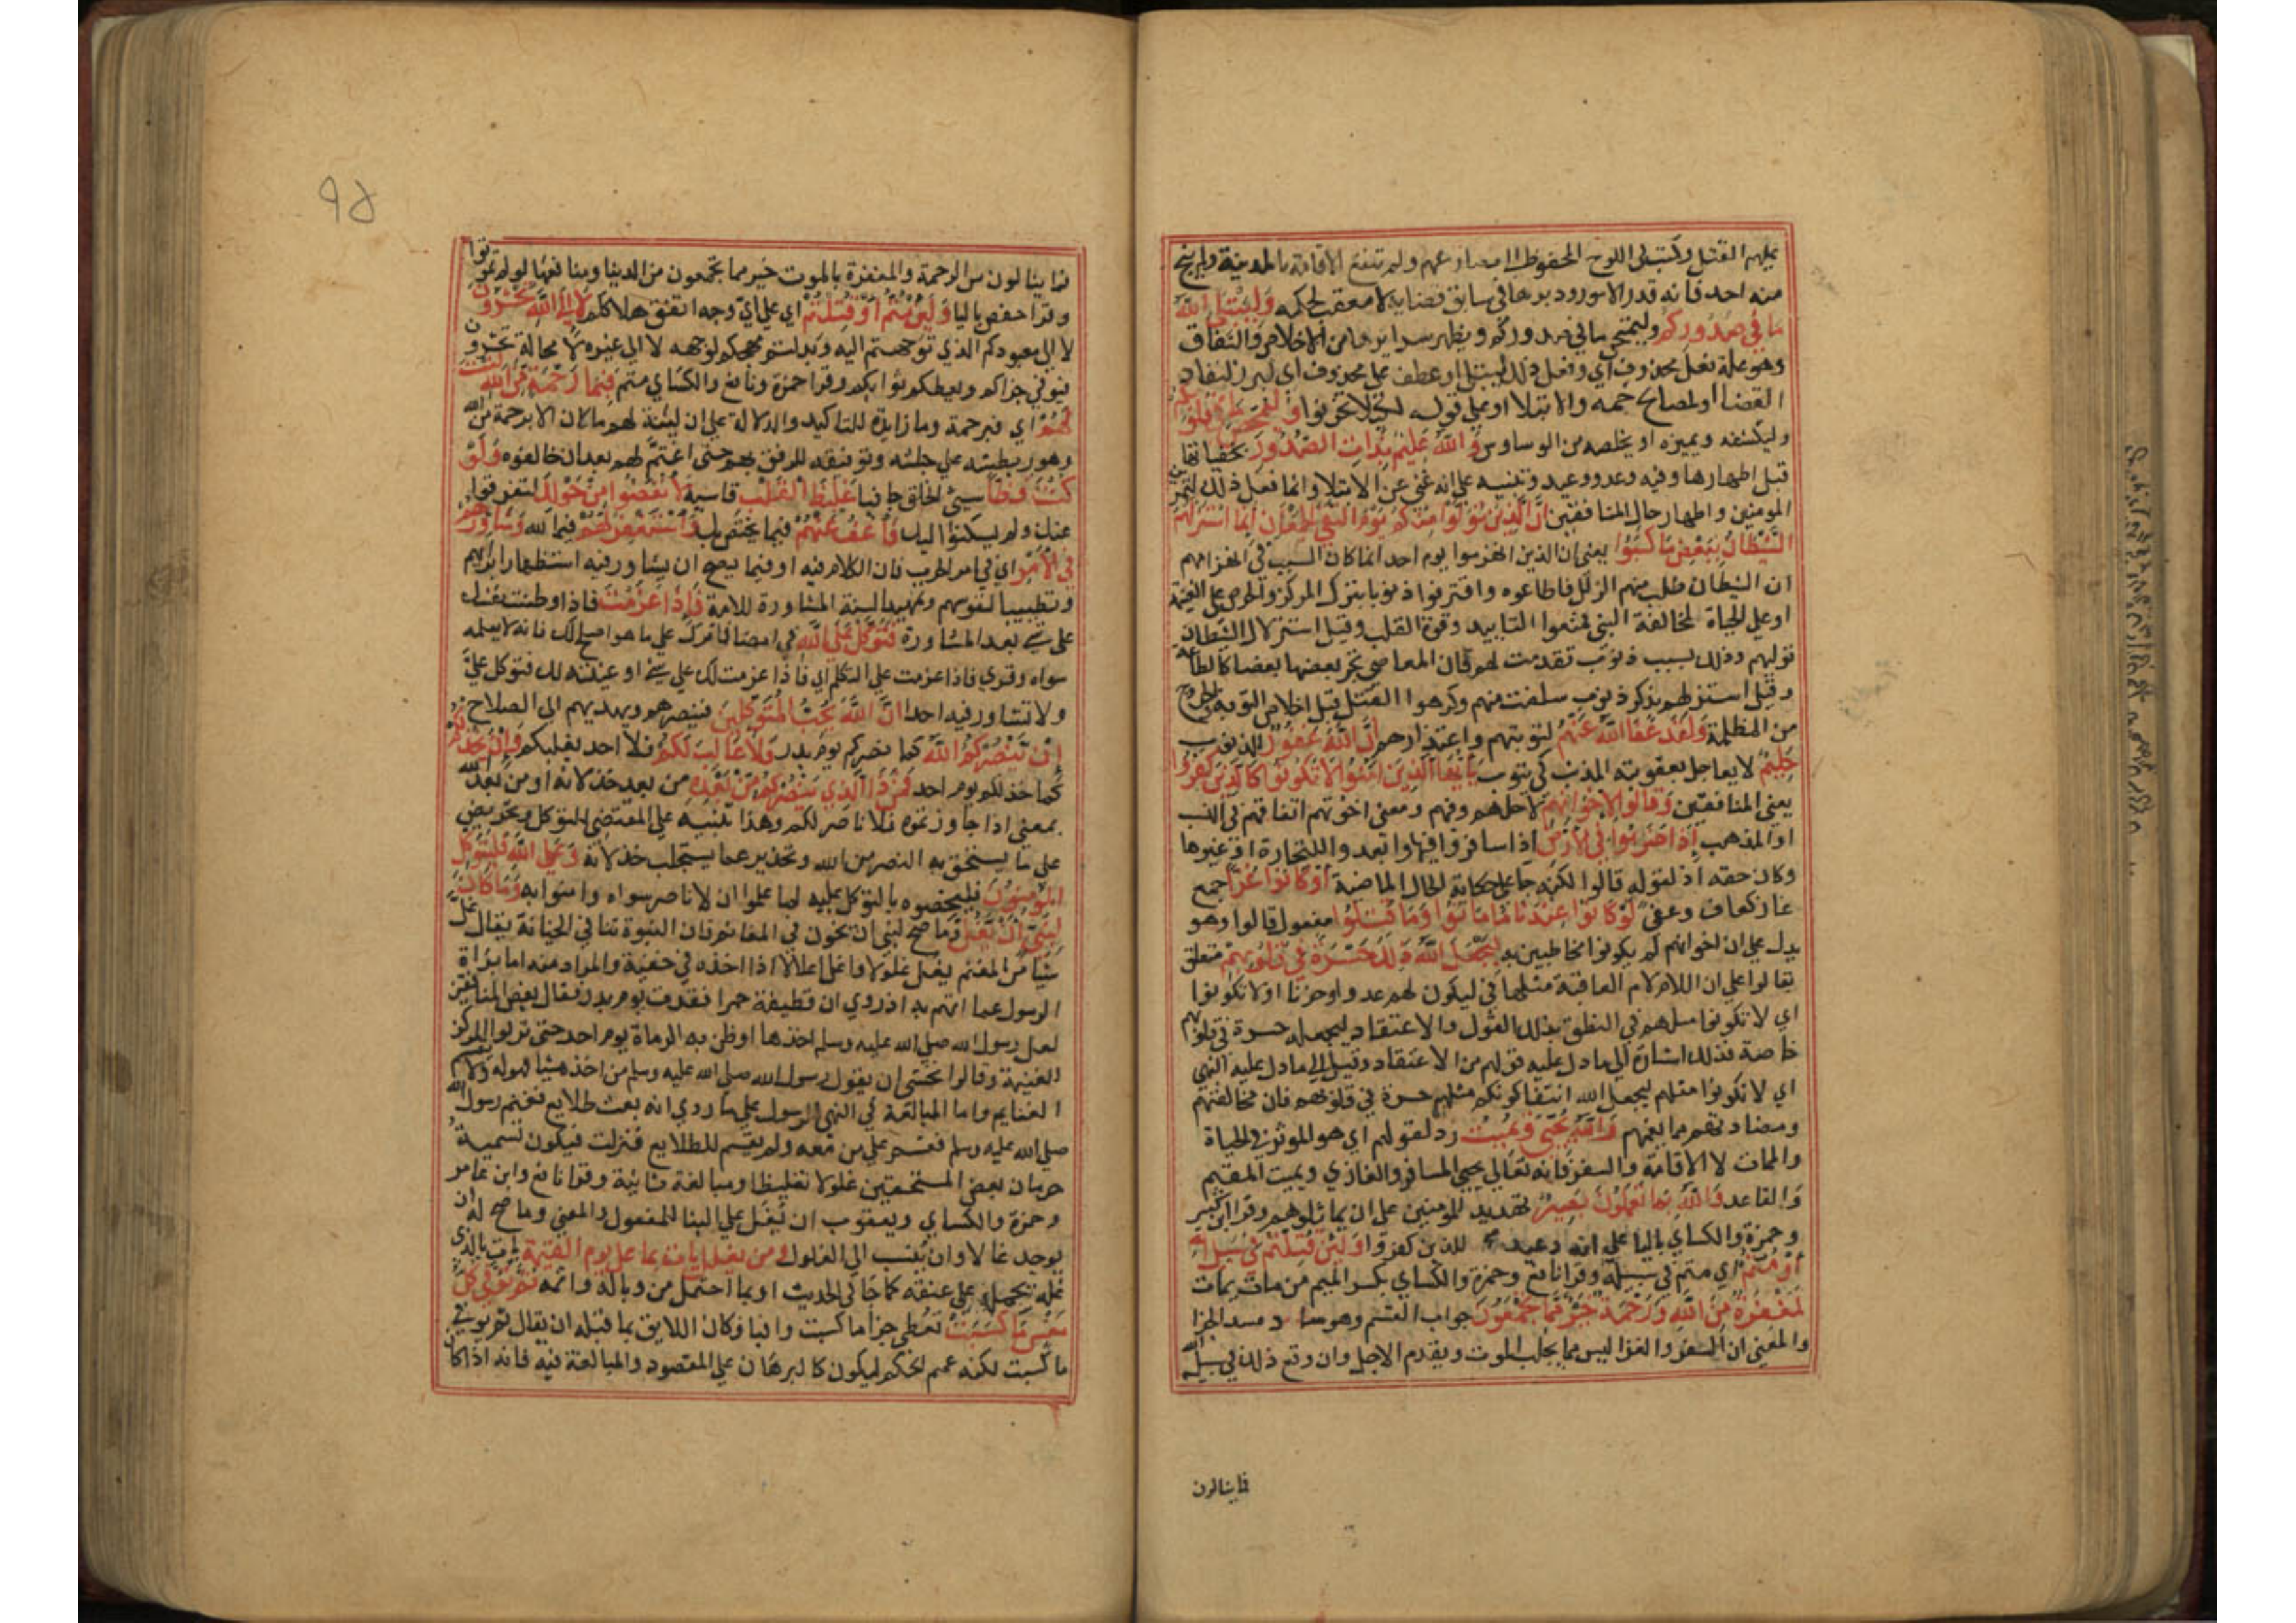 عليهم القتل وكتب في اللوح المحفوظ الى مصارعهم ولم تنفع الاقامة بالمدينة ولم ينج
منه احد فانه قدر الامور ودبرها في سابق قضايه لا معقب لحكمه وَلِيَبْتَلِيَ اللهُ
مَا فِي صُدُورِكُمْ وليمتحن ما في صدوركم ويظهر سرايرها من الاخلاص والنفاق
وهو علة فعل محذوف اي وفعل ذلك ليبتلي او عطف على محذوف اي لبرز لنفاد
القضا او لمصالح جمه والابتلا او على قوله لكيلا تحزنوا وَلِيُمَحِّصَ مَا فِي قُلُوبِكُمْ
وليكشفه ويميزه او يخلصه من الوساوس وَاللهُ عَلِيمٌ بِذَاتِ الصُّدُورِ بخفياتها
قبل اظهارها وفيه وعد ووعيد وتنبيه على انه غني عن الابتلا وانما فعل ذلك لتمرين
المومنين واظهار حال المنافقين اِنَّ الَّذِينَ تَوَلَّوْا مِنْكُمْ يَوْمَ الْتَقَى الْجَمْعَانِ اِنَّمَا اسْتَزَلَّهُمُ
الشَّيْطَانُ بِبَعْضِ مَا كَسَبُوا يعني ان الذين انهزموا يوم احد انما كان السبب في انهزامهم
ان الشيطان طلب منهم الزلل فاطاعوه واقترفوا ذنوبا بترك المركز والحرص على الغنيمة
او على الحياة لمخالفة النبي فمنعوا التاييد وقوة القلب وقيل استزلال الشيطان
توليهم وذلك بسبب ذنوب تقدمت لهم فان المعاصي يجر بعضها بعضا كالطاعة
وقيل استزلهم بذكر ذنوب سلفت منهم وكرهوا القتل قبل اخلاص التوبة والخروج
من المظلمة وَلَقَدْ عَفَا اللهُ عَنْهُمْ لتوبتهم واعتذارهم اِنَّ اللهَ غَفُورٌ للذنوب
حَلِيمٌ لا يعاجل بعقوبة المذنب كي يتوب يَا اَيُّهَا الَّذِينَ اٰمَنُوا لَا تَكُونُوا كَالَّذِينَ كَفَرُوا
يعني المنافقين وَقَالُوا لِاِخْوَانِهِمْ لاجلهم وفيهم ومعنى اخوتهم اتفاقهم في النسب
او المذهب اِذَا ضَرَبُوا فِي الْاَرْضِ اذا سافروا فيها وابعدوا للتجارة او غيرها
وكان حقه اذ لقوله قالوا لكنه جا على حكاية الحال الماضية اَوْ كَانُوا غُزًّى جمع
غاز كعاف وعفى لَوْ كَانُوا عِنْدَنَا مَا مَاتُوا وَمَا قُتِلُوا مفعول قالوا وهو
يدل على ان اخوانهم لم يكونوا مخاطبين به لِيَجْعَلَ اللهُ ذٰلِكَ حَسْرَةً فِي قُلُوبِهِمْ متعلق
بقالوا على ان اللام لام العاقبة مثلها في ليكون لهم عدوا وحزنا او لا تكونوا
اي لا تكونوا مثلهم في النطق بذلك القول والاعتقاد ليجعله حسرة في قلوبهم
خاصة فذلك اشارة الى ما دل عليه قولهم من الاعتقاد وقيل الى ما دل عليه النهي
اي لا تكونوا مثلهم ليجعل الله انتفا كونكم مثلهم حسرة في قلوبهم فان مخالفتهم
ومضادتهم مما يغمهم وَاللهُ يُحْيِي وَيُمِيتُ رد لقولهم اي هو الموثر في الحياة
والممات لا الاقامة والسفر فانه تعالى يحيي المسافر والغازي ويميت المقيم
والقاعد وَاللهُ بِمَا تَعْمَلُونَ بَصِيرٌ تهديد للمومنين على ان يماثلوهم وقرا ابن كثير
وحمزة والكساي باليا على انه وعيد للذين كفروا وَلَئِنْ قُتِلْتُمْ فِي سَبِيلِ اللهِ
اَوْ مُتُّمْ اي متم في سبيله وقرا نافع وحمزة والكساي بكسر الميم من مات يمات
لَمَغْفِرَةٌ مِنَ اللهِ وَرَحْمَةٌ خَيْرٌ مِمَّا تَجْمَعُونَ جواب القسم وهو ساد مسد الجزا
والمعنى ان السفر والغزا ليس مما يجلب الموت ويقدم الاجل وان وقع ذلك في سبيل الله
فما ينالون
٩٥
فما ينالون من الرحمة والمغفرة بالموت خير مما تجمعون من الدنيا ومنافعها لو لم تموتوا
وقرا حفص باليا وَلَئِنْ مُتُّمْ اَوْ قُتِلْتُمْ اي على اي وجه اتفق هلاككم لَاِلَى اللهِ تُحْشَرُونَ
لا الى معبودكم الذي توجهتم اليه وبذلتم مهجكم لوجهه لا الى غيره لا محالة تحشرون
فيوفي جزاكم ويعظم ثوابكم وقرا حمزة ونافع والكساي متم فَبِمَا رَحْمَةٍ مِنَ اللهِ لِنْتَ
لَهُمْ اي فبرحمة وما زايدة للتاكيد والدلالة على ان لينه لهم ما كان الا برحمة من الله
وهو ربطه على جاشه وتوفيقه للرفق بهم حتى اغتم لهم بعد ان خالفوه وَلَوْ
كُنْتَ فَظًّا سيئ الخلق جافيا غَلِيظَ الْقَلْبِ قاسيه لَانْفَضُّوا مِنْ حَوْلِكَ لتفرقوا
عنك ولم يسكنوا اليك فَاعْفُ عَنْهُمْ فيما يختص بك وَاسْتَغْفِرْ لَهُمْ فيما لله وَشَاوِرْهُمْ
فِي الْاَمْرِ اي في امر الحرب فان الكلام فيه او فيما يصح ان يشاور فيه استظهارا برايهم
وتطييبا لنفوسهم وتمهيدا لسنة المشاورة للامة فَاِذَا عَزَمْتَ فاذا وطنت نفسك
على شي بعد المشاورة فَتَوَكَّلْ عَلَى اللهِ في امضا امرك على ما هو اصلح لك فانه لا يعلمه
سواه وقري فاذا عزمت على التكلم اي فاذا عزمت لك على شي او عينته لك فتوكل علي
ولا تشاور فيه احدا اِنَّ اللهَ يُحِبُّ الْمُتَوَكِّلِينَ فينصرهم ويهديهم الى الصلاح
اِنْ يَنْصُرْكُمُ اللهُ كما نصركم يوم بدر فَلَا غَالِبَ لَكُمْ فلا احد يغلبكم وَاِنْ يَخْذُلْكُمْ
كما خذلكم يوم احد فَمَنْ ذَا الَّذِي يَنْصُرُكُمْ مِنْ بَعْدِهِ من بعد خذلانه او من بعد الله
بمعنى اذا جاوزتموه فلا ناصر لكم وهذا تنبيه على المقتضي للتوكل وتحريض
على ما يستحق به النصر من الله وتحذير عما يستجلب خذلانه وَعَلَى اللهِ فَلْيَتَوَكَّلِ
الْمُؤْمِنُونَ فليخصوه بالتوكل عليه لما علموا ان لا ناصر سواه وامنوا به وَمَا كَانَ
لِنَبِيٍّ اَنْ يَغُلَّ وما صح لنبي ان يخون في الغنائم فان النبوة تنافي الخيانة يقال غل
شيا من المغنم يغل غلولا واغل اغلالا اذا اخذه في خفية والمراد منه اما براة
الرسول عما اتهم به اذ روي ان قطيفة حمرا فقدت يوم بدر فقال بعض المنافقين
لعل رسول الله صلى الله عليه وسلم اخذها او ظن به الرماة يوم احد حتى تركوا المركز
الغنيمة وقالوا نخشى ان يقول رسول الله صلى الله عليه وسلم من اخذ شيا فهو له ولا يقسم
الغنايم واما المبالغة في النهي للرسول على ما روي انه بعث طلايع فغنم رسول الله
صلى الله عليه وسلم فقسم على من معه ولم يقسم للطلايع فنزلت فيكون تسمية
حرمان بعض المستحقين غلولا تغليظا ومبالغة ثانية وقرا نافع وابن عامر
وحمزة والكساي ويعقوب ان يُغَل على البنا للمفعول والمعنى وما صح له ان
يوجد غالا وان ينسب الى الغلول ومن يغلل يات بما غل يوم القيمة يات بالذي
غله يحمله على عنقه كما جا في الحديث او بما احتمل من وباله واثمه ثُمَّ تُوَفَّى كُلُّ
نَفْسٍ مَا كَسَبَتْ تعطى جزا ما كسبت وافيا وكان اللايق بما قبله ان يقال ثم يوفى
ما كسبت لكنه عمم الحكم ليكون كالبرهان على المقصود والمبالغة فيه فانه اذا كان